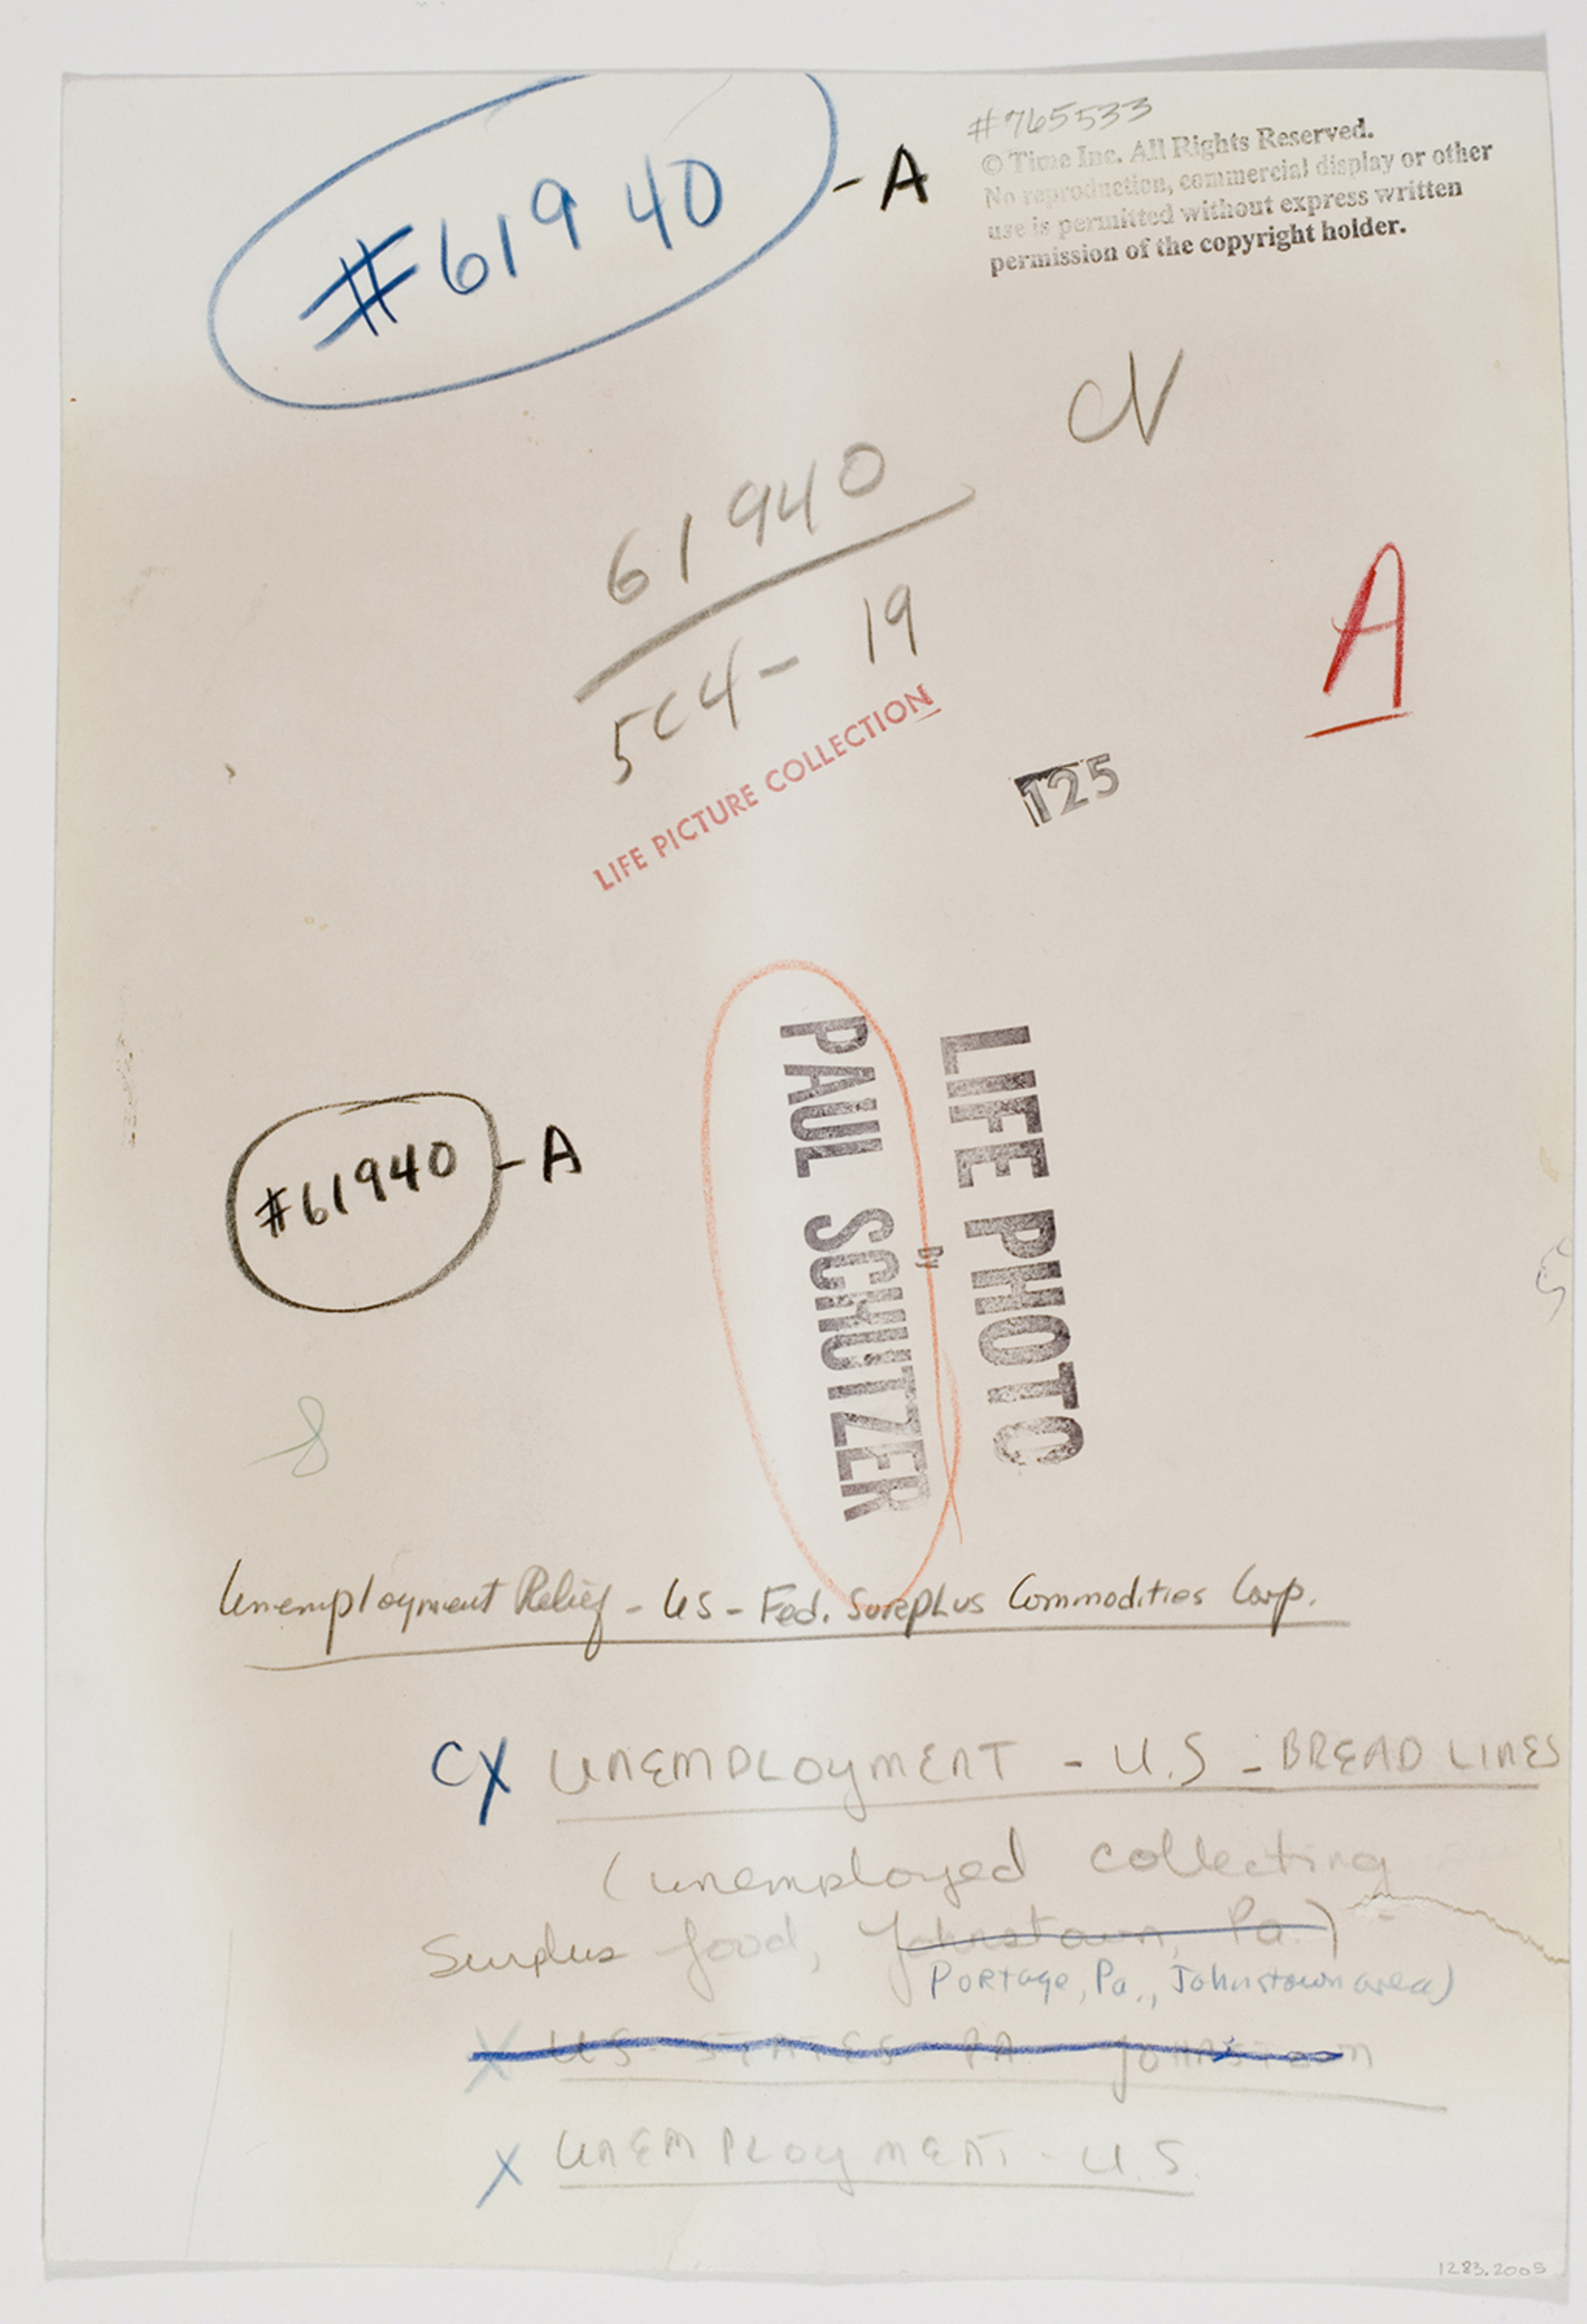 #61940 -A
#765533
© Time Inc. All Rights Reserved.
No reproduction, commercial display or other
use is permitted without express written
permission of the copyright holder.
61940
19
LIFE PICTURE COLLECTION
A
125
LIFE PHOTO
by
PAUL SCHUTZER
#61940 -A
8
Unemployment Relief - US - Fed. Surplus Commodities Corp.
CX UNEMPLOYMENT - U.S - BREAD LINES
(unemployed collecting
Surplus food, Johnstown, Pa.)
Portage, Pa., Johnstown area)
X US - STATES - PA - Johnstown
X UNEMPLOYMENT - U.S.
1283.2005